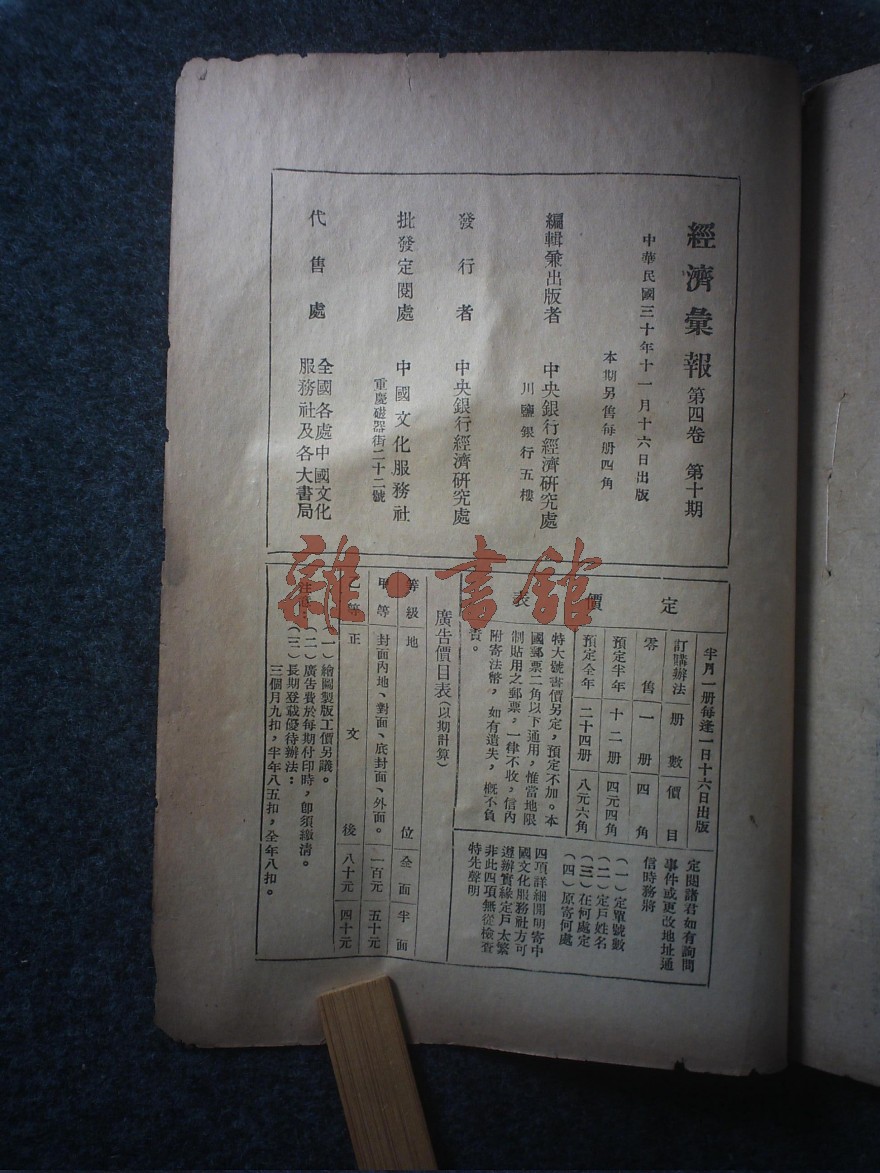 經濟彙報 第四卷 第十期
中華民國三十年十一月十六日出版
本期另售每册四角
編輯兼出版者 中央銀行經濟研究處
川鹽銀行五樓
發行者 中央銀行經濟研究處
批發定閱處 中國文化服務社
重慶磁器街二十二號
代售處 全國各處中國文化
服務社及各大書局
定價表
半月一册每逢一日十六日出版
訂購辦法 册數 價目
零售 一册 四角
預定半年 十二册 四元四角
預定全年 二十四册 八元六角
特大號書價另定，預定不加。本
國郵票二角以下通用，惟當地限
制貼用之郵票，一律不收，信內
附寄法幣，如有遺失，概不負
責。
定閱諸君如有詢問
事件或更改地址通
信時務將
（一）定單號數
（二）定戶姓名
（三）在何處定
（四）原寄何處
四項詳細開明寄中
國文化服務社方可
遵辦實緣定戶太繁
非此四項無從檢查
特先聲明
廣告價目表（以期計算）
等級 地位 全面 半面
甲等 封面內地、對面、底封面、外面。 一百元 五十元
乙等 正文後 八十元 四十元
注意：（一）繪圖製版工價另議。
（二）廣告費於每期付印時，卽須繳清。
（三）長期登載優待辦法：
三個月九扣，半年八五扣，全年八扣。
雜·書館